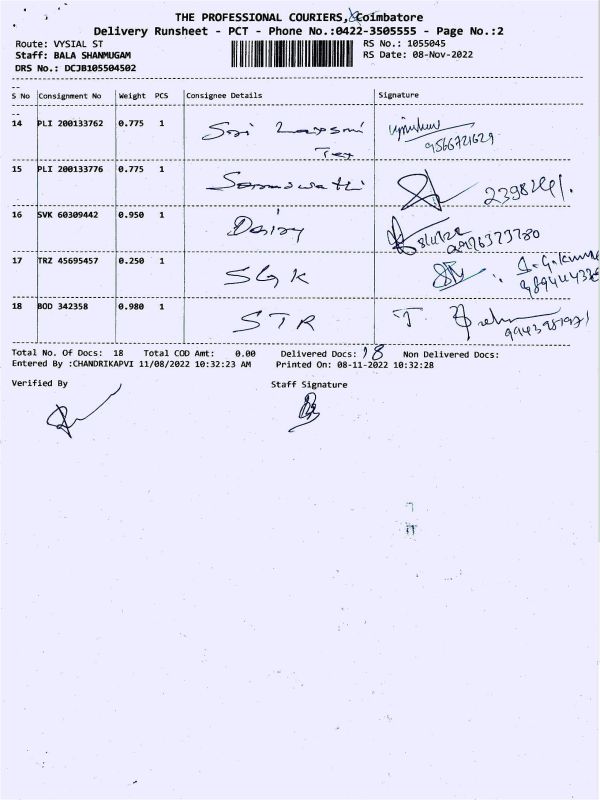 THE PROFESSIONAL COURIERS, Coimbatore
Delivery Runsheet - PCT - Phone No.:0422-3505555 - Page No.:2
Route: VYSIAL ST RS No.: 1055045
Staff: BALA SHANMUGAM RS Date: 08-Nov-2022
DRS No.: DCJB105504502
S No Consignment No Weight PCS Consignee Details Signature
14 PLI 200133762 0.775 1 Sri Laxsmi
Tex 9566721629
15 PLI 200133776 0.775 1 Saraswathi
16 SVK 60309442 0.950 1 Dairy
17 TRZ 45695457 0.250 1 SGK
18 BOD 342358 0.980 1 STR T.
Total No. Of Docs: 18 Total COD Amt: 0.00 Delivered Docs: 18 Non Delivered Docs:
Entered By :CHANDRIKAPVI 11/08/2022 10:32:23 AM Printed On: 08-11-2022 10:32:28
Verified By Staff Signature